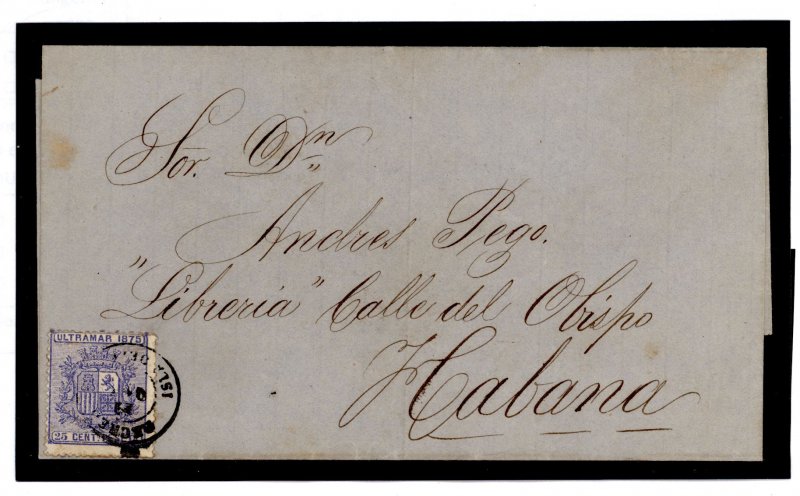 Sor. Dn
Andres Pego.
"Libreria" Calle del Obispo
Habana
ULTRAMAR 1875
25 CENT
ISLA DE